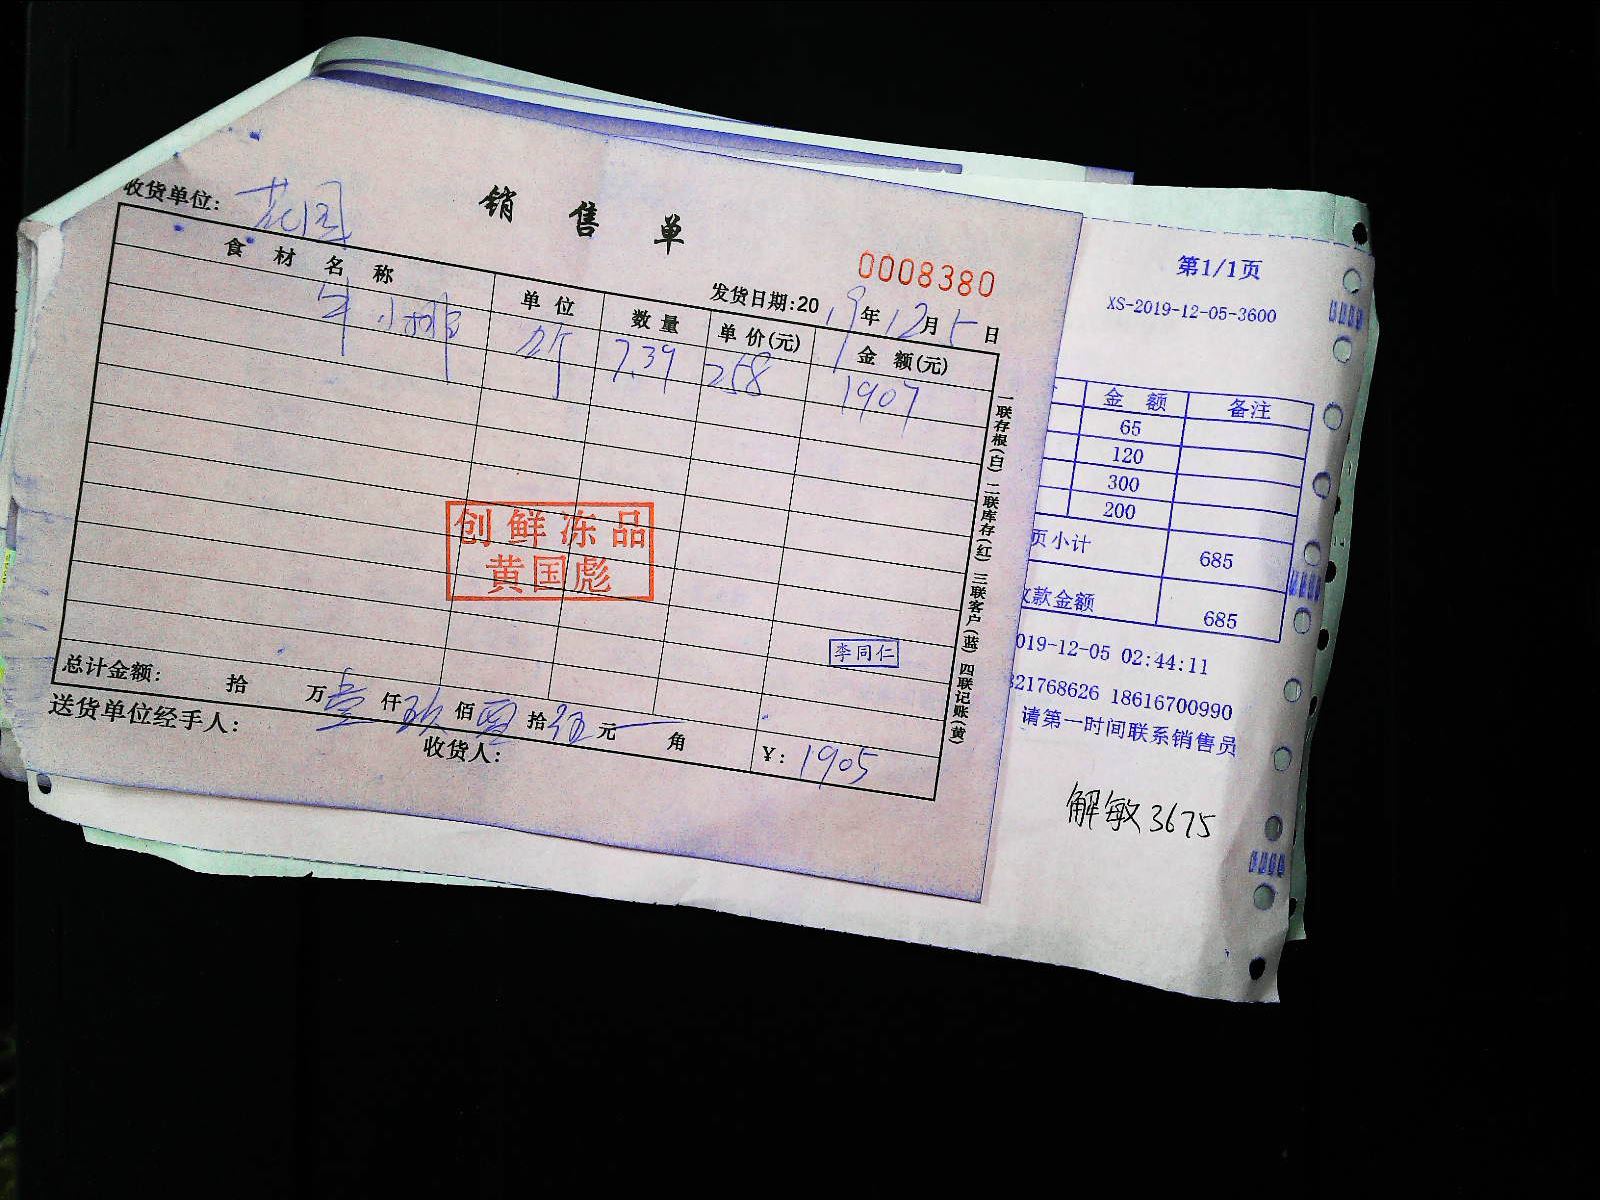 销售单
收货单位: 花园
0008380
发货日期:2019年12月5日
食材名称 单位 数量 单价(元) 金额(元)
牛小排 斤 7.39 258 1907
创鲜冻品
黄国彪
李同仁
总计金额: 拾 万壹仟玖佰零拾伍元 角 ¥: 1905
送货单位经手人: 收货人:
一联存根(白) 二联库存(红) 三联客户(蓝) 四联记账(黄)
第1/1页
XS-2019-12-05-3600
金额 备注
65
120
300
200
页小计 685
款金额 685
019-12-05 02:44:11
21768626 18616700990
请第一时间联系销售员
解敏3675